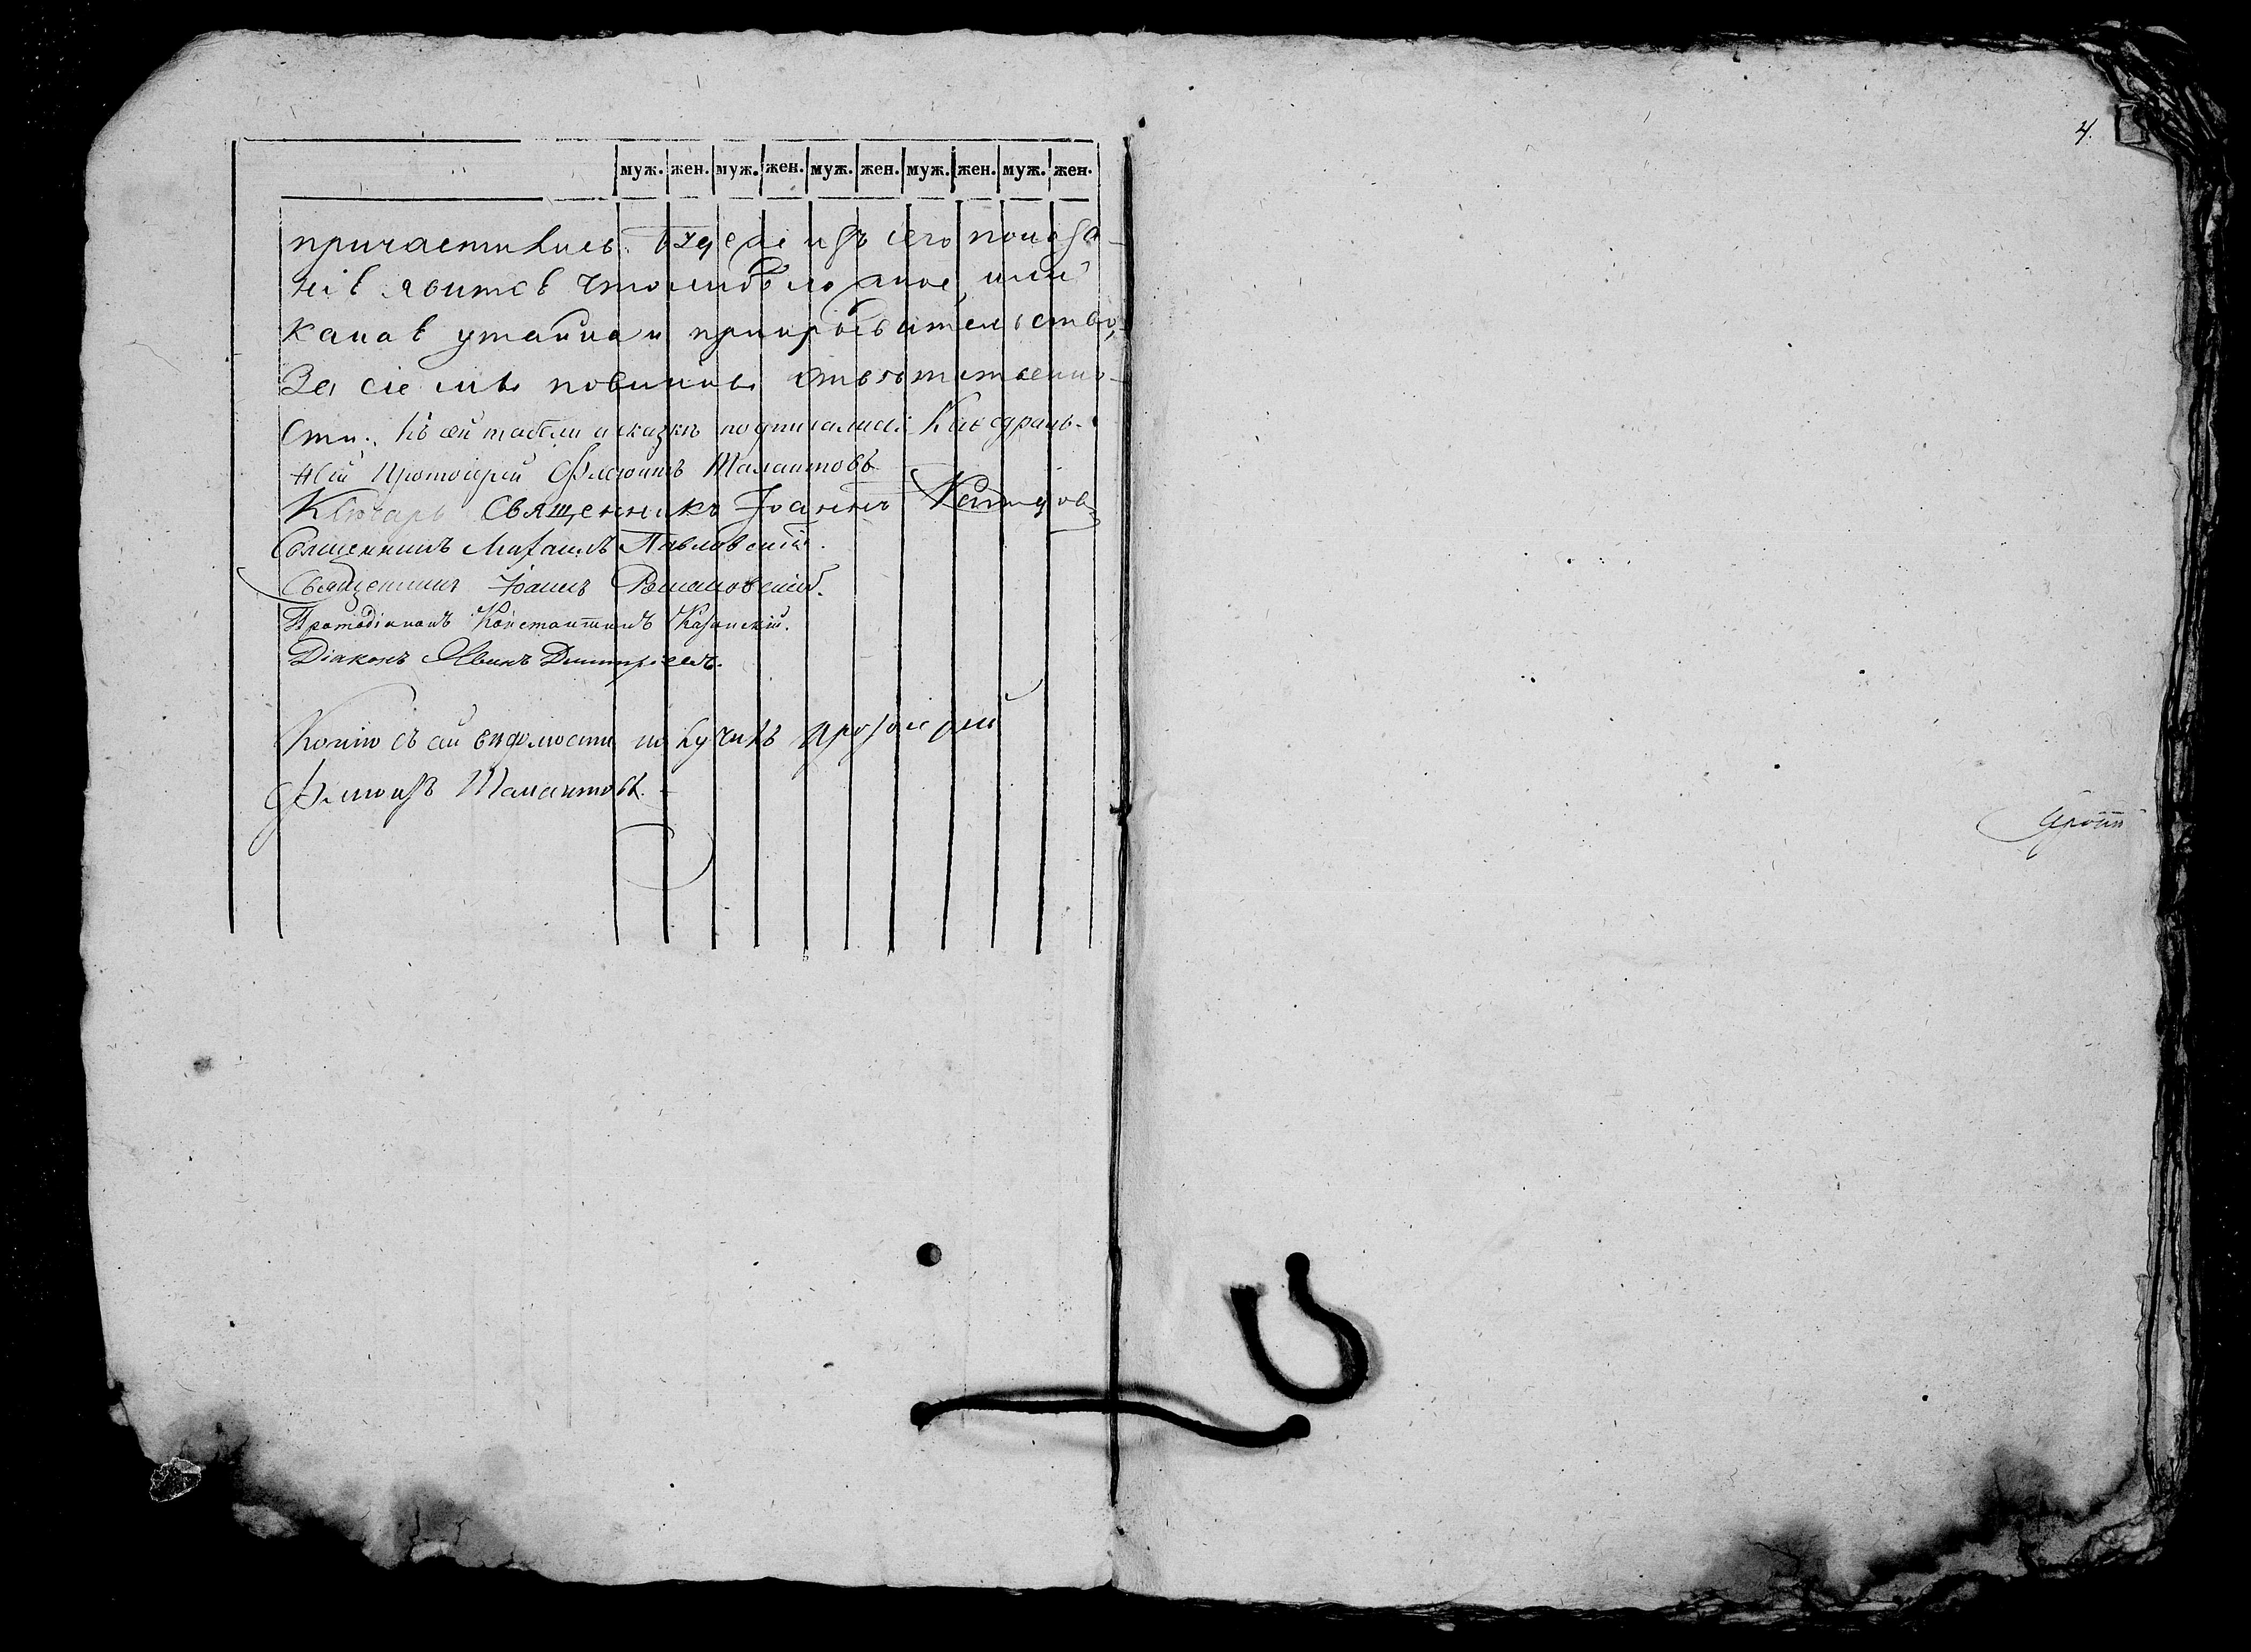 муж. жен. муж. жен. муж. жен. муж. жен. муж. жен.
причастились. Буде же изъ сего показа-
нія явится что либо ложное, или
какая утайка и прикрывательство,
За сіе мы повинны отвѣтственно-
сти. Къ сей табели и сказкѣ подписались: Каѳедраль-
ный Протоіерей Талантовъ
Ключарь Священникъ Іоаннъ
Священникъ Михаилъ Павловскій.
Священникъ Іоаннъ
Протодіаконъ Константинъ Казанскій.
Діаконъ Димитріевъ.
Копію съ сей вѣдомости получилъ Протоіерей
Талантовъ.
4.